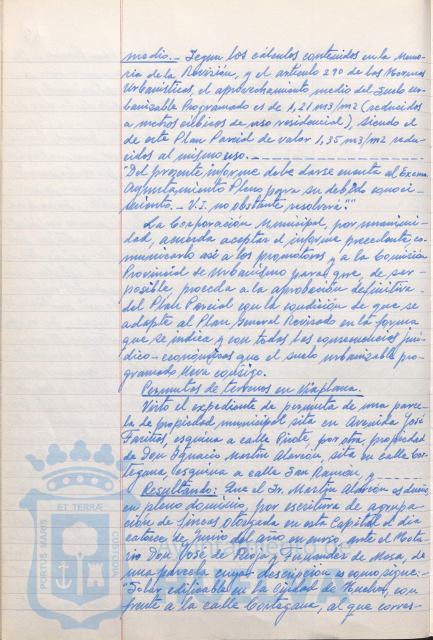 medio.- Segun los cálculos contenidos en la Memo-
ria de la Revisión, y el artículo 290 de las Normas
Urbanísticas, el aprovechamiento medio del Suelo ur-
banizable Programado es de 1,21 m3/m2 (reducidos
a metros cúbicos de uso residencial), siendo el
de este Plan Parcial de valor 1,35 m3/m2 redu-
cidos al mismo uso.-
"Del presente informe debe darse cuenta al Excmo.
Ayuntamiento Pleno para su debido conoci-
miento.- V.I. no obstante resolverá"."
La Corporación Municipal, por unanimi-
dad, acuerda aceptar el informe precedente, co-
municarlo así a los promotores y a la Comisión
Provincial de Urbanismo para que, de ser
posible, proceda a la aprobación definitiva
del Plan Parcial con la condición de que se
adapte al Plan General Revisado en la forma
que se indica y con todas las consecuencias jurí-
dico-económicas que el suelo urbanizable pro-
gramado lleva consigo.
Permutas de terrenos en Viaplana.
Visto el expediente de permuta de una parce-
la de propiedad municipal sita en Avenida José
Fariñas, esquina a calle Pirote, por otra propiedad
de Don Ignacio Martín Alarcón, sita en calle Cor-
tegana esquina a calle San Ramón, y
Resultando: Que el Sr. Martín Alarcón es dueño
en pleno dominio, por escritura de agrupa-
ción de fincas otorgada en esta Capital el día
catorce de junio del año en curso, ante el Nota-
rio Don José de y Fernández de Mesa, de
una parcela cuya descripción es como sigue:-
"Solar edificable en la Ciudad de Huelva, con
frente a la calle Cortegana, al que corres-
PORTUS MARIS
ET TERRAE
CUSTODIA